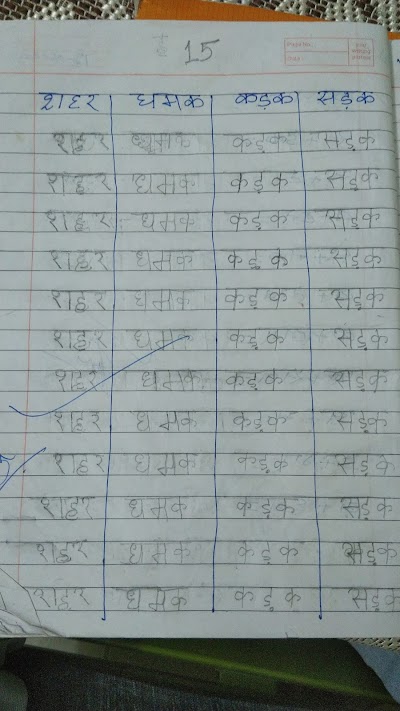 15
Page No.:
Date:
शहर धमक कड़क सड़क
शहर धमक कड़क सड़क
शहर धमक कड़क सड़क
शहर धमक कड़क सड़क
शहर धमक कड़क सड़क
शहर धमक कड़क सड़क
शहर धमक कड़क सड़क
शहर धमक कड़क सड़क
शहर धमक कड़क सड़क
शहर धमक कड़क सड़क
शहर धमक कड़क सड़क
शहर धमक कड़क सड़क
शहर धमक कड़क सड़क